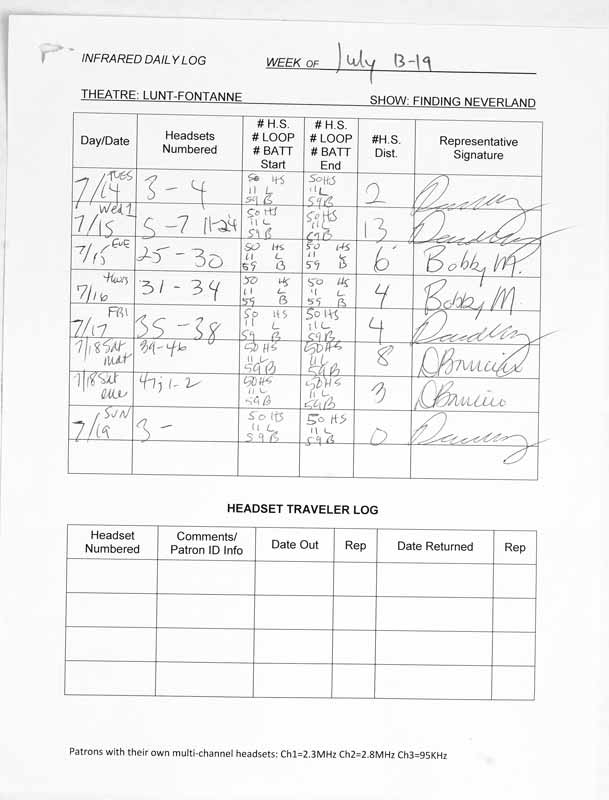 INFRARED DAILY LOG WEEK OF July 13-19
THEATRE: LUNT-FONTANNE SHOW: FINDING NEVERLAND
Day/Date
Headsets
Numbered
# H.S.
# LOOP
# BATT
Start
# H.S.
# LOOP
# BATT
End
#H.S.
Dist.
Representative
Signature
TUES
7/14 3 - 4
50 HS
11 L
59 B
50 HS
11 L
59 B
2
Wed 1
7/15 5-7 11-24
50 HS
11 L
59 B
50 HS
11 L
59 B
13
EVE
7/15 25 - 30
50 HS
11 L
59 B
50 HS
11 L
59 B
6 Bobby M.
thurs
7/16 31 - 34
50 HS
11 L
59 B
50 HS
11 L
59 B
4 Bobby M
FRI
7/17 35 - 38
50 HS
11 L
59 B
50 HS
11 L
59 B
4
7/18 Sat
mat
39-46
50 HS
11 L
59 B
50 HS
11 L
59 B
8
7/18 Sat
eve
47; 1-2
50 HS
11 L
59 B
50 HS
11 L
59 B
3
SUN
7/19 3 -
50 HS
11 L
59 B
50 HS
11 L
59 B
0
HEADSET TRAVELER LOG
Headset
Numbered
Comments/
Patron ID Info
Date Out
Rep
Date Returned
Rep
Patrons with their own multi-channel headsets: Ch1=2.3MHz Ch2=2.8MHz Ch3=95KHz